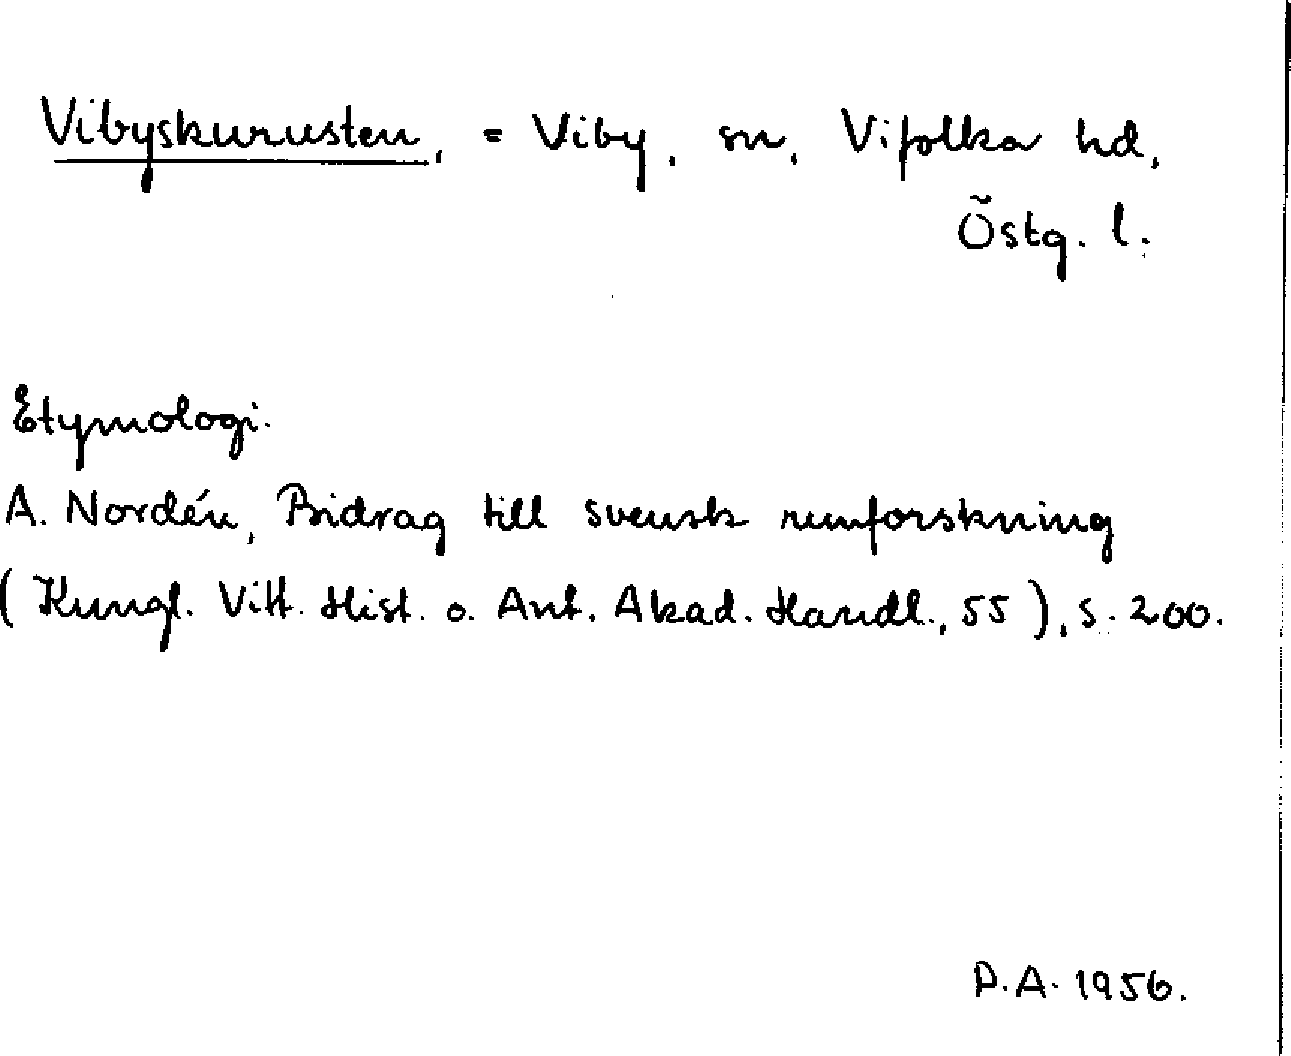 Vibyskurusten, = Viby, sn, Vifolka hd,
Östg. l.
Etymologi.
A. Nordén, Bidrag till svensk runforskning
(Kungl. Vitt. Hist. o. Ant. Akad. Handl., 55), s. 200.
P.A. 1956.